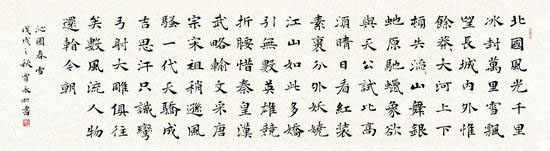 北國風光千里
冰封萬里雪飄
望長城内外惟
餘莽大河上下
頓失滔山舞銀
蛇原馳蠟象欲
與天公試比高
須晴日看紅裝
素裹分外妖嬈
江山如此多嬌
引無數英雄競
折腰惜秦皇漢
武略輸文采唐
宗宋祖稍遜風
騷一代天驕成
吉思汗只識彎
弓射大雕俱往
矣數風流人物
還看今朝
沁園春雪
戊戌之秋